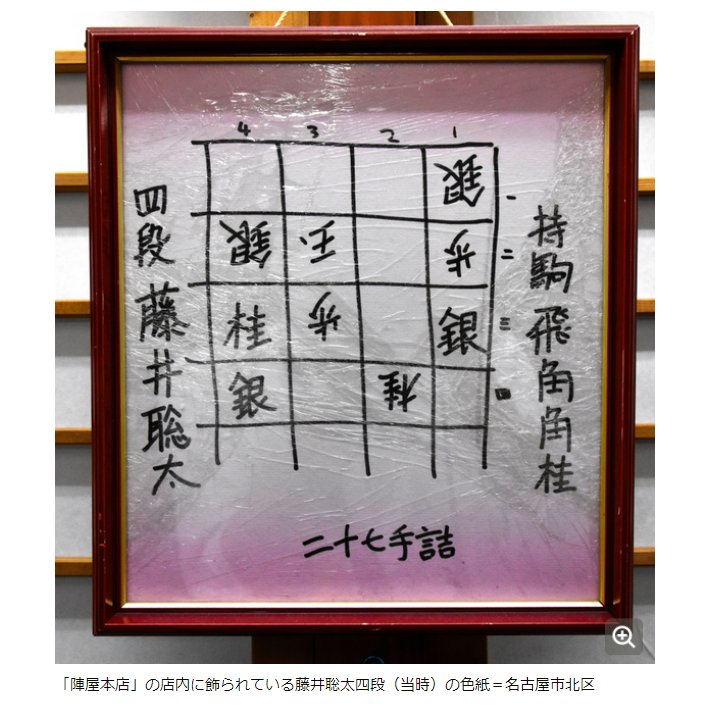 持駒 飛角角桂
4 3 2 1
銀 一
銀 玉 歩 二
桂 歩 銀 三
銀 桂 四
四段 藤井聡太
二十七手詰
「陣屋本店」の店内に飾られている藤井聡太四段（当時）の色紙＝名古屋市北区